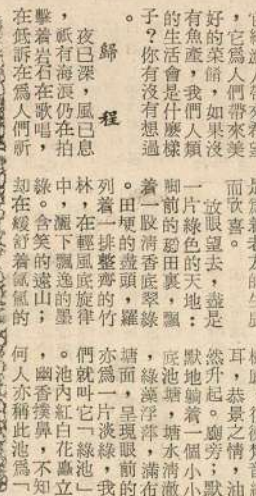 ，它為人們帶來美
好的菜餚，如果沒
有魚產，我們人類
的生活會是什麼樣
子？你有沒有想過
。
歸程
夜已深，風已息
，祇有海浪仍在拍
擊着岩石在歌唱，
在低訴在為人們祈
而歡喜。
放眼望去，盡是
一片綠色的天地：
脚前的稻田裏，飄
着一股淸香底翠綠
。田埂的盡頭，羅
列着一排整齊的竹
林，在輕風底旋律
中，灑下飄逸的墨
綠。含笑的遠山；
却在緩紓着氤氳的
耳，恭景之情，油
然升起。廟旁；默
默地躺着一個小小
底池塘，塘水淸澈
，綠藻浮萍，滿佈
塘面，呈現眼前的
亦為一片淡綠，我
們就叫它「綠池」
。池內紅白花矗立
，幽香撲鼻，不知
何人亦稱此池為「